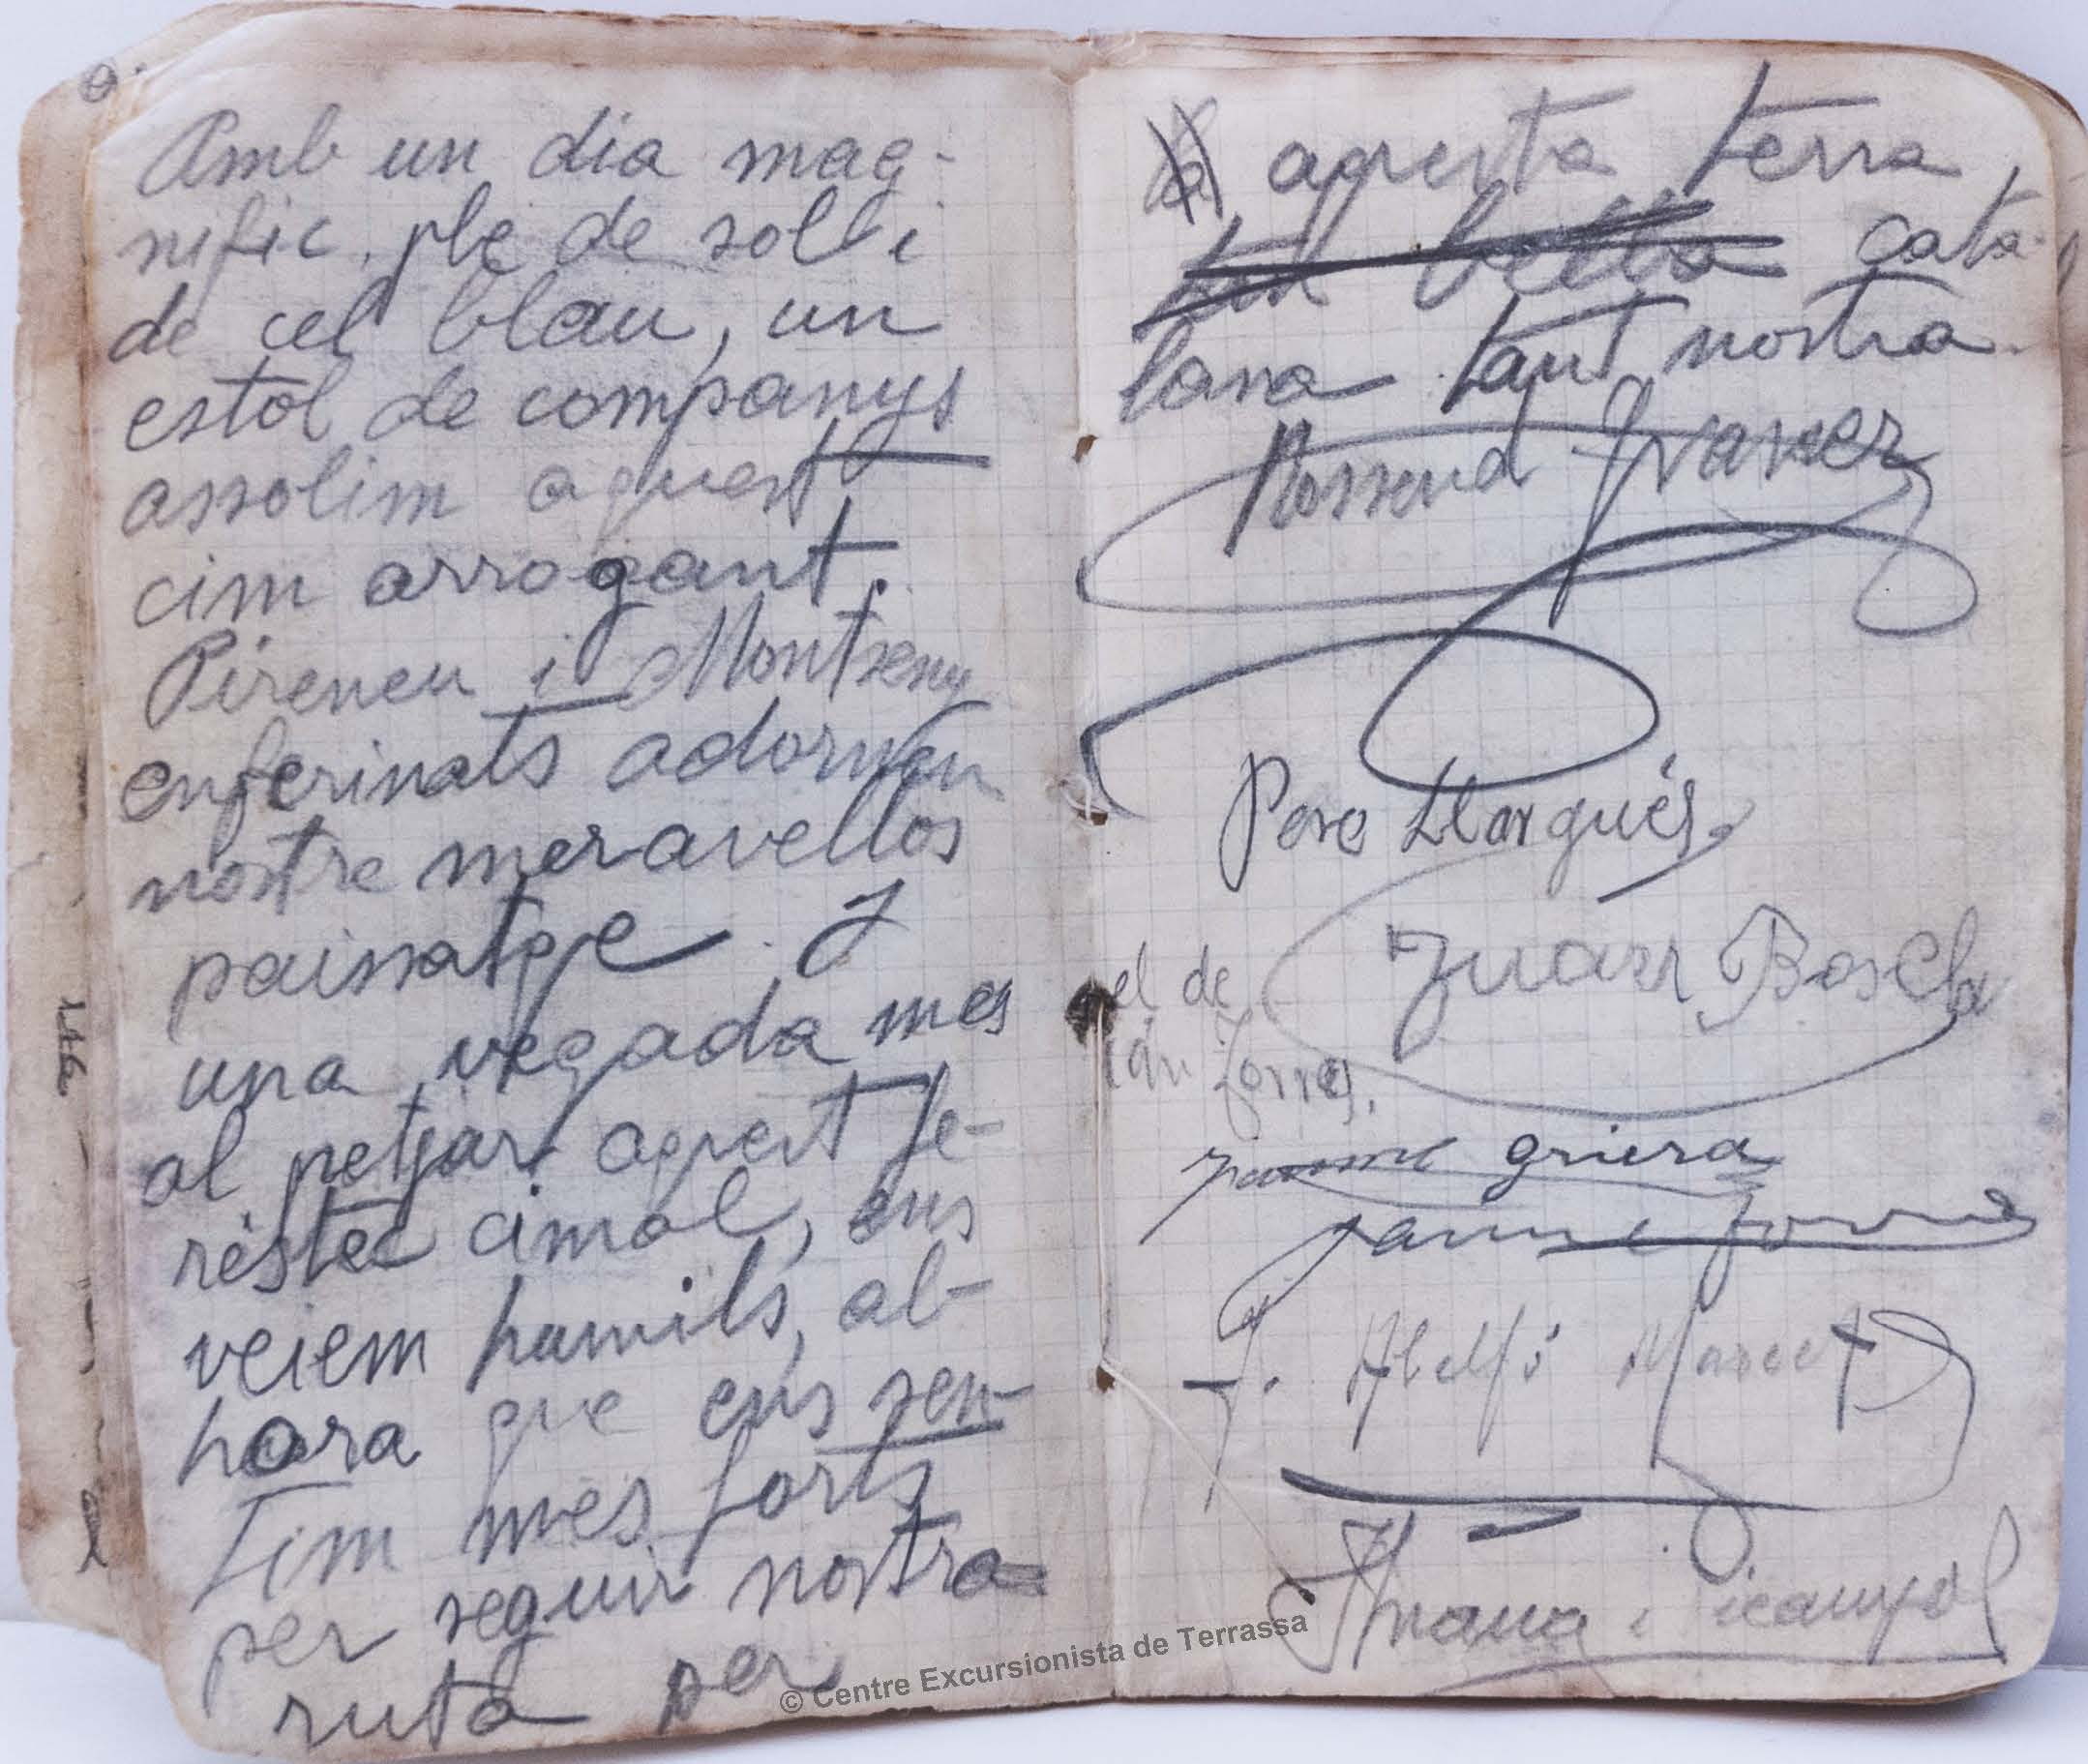 Amb un dia mag-
nific, ple de sol i
de cel blau, un
estol de companys
assolim aquest
cim arrogant.
Pireneu i Montseny
enferinats adornen
nostre meravellos
paissatge. I
una vegada mes
al petjar aquest fe-
réstec cimal, ens
veiem humils, al-
hora que ens sen-
tim mes forts
per seguir nostra
ruta per
la aquesta terra
tan bella cata-
lana tant nostra.
Rossend Fravanez
Pere Llargués
Juan Bosch
el de
Torres.
Jaume griera
Jaume Torres
Adelfi Marcet
© Centre Excursionista de Terrassa